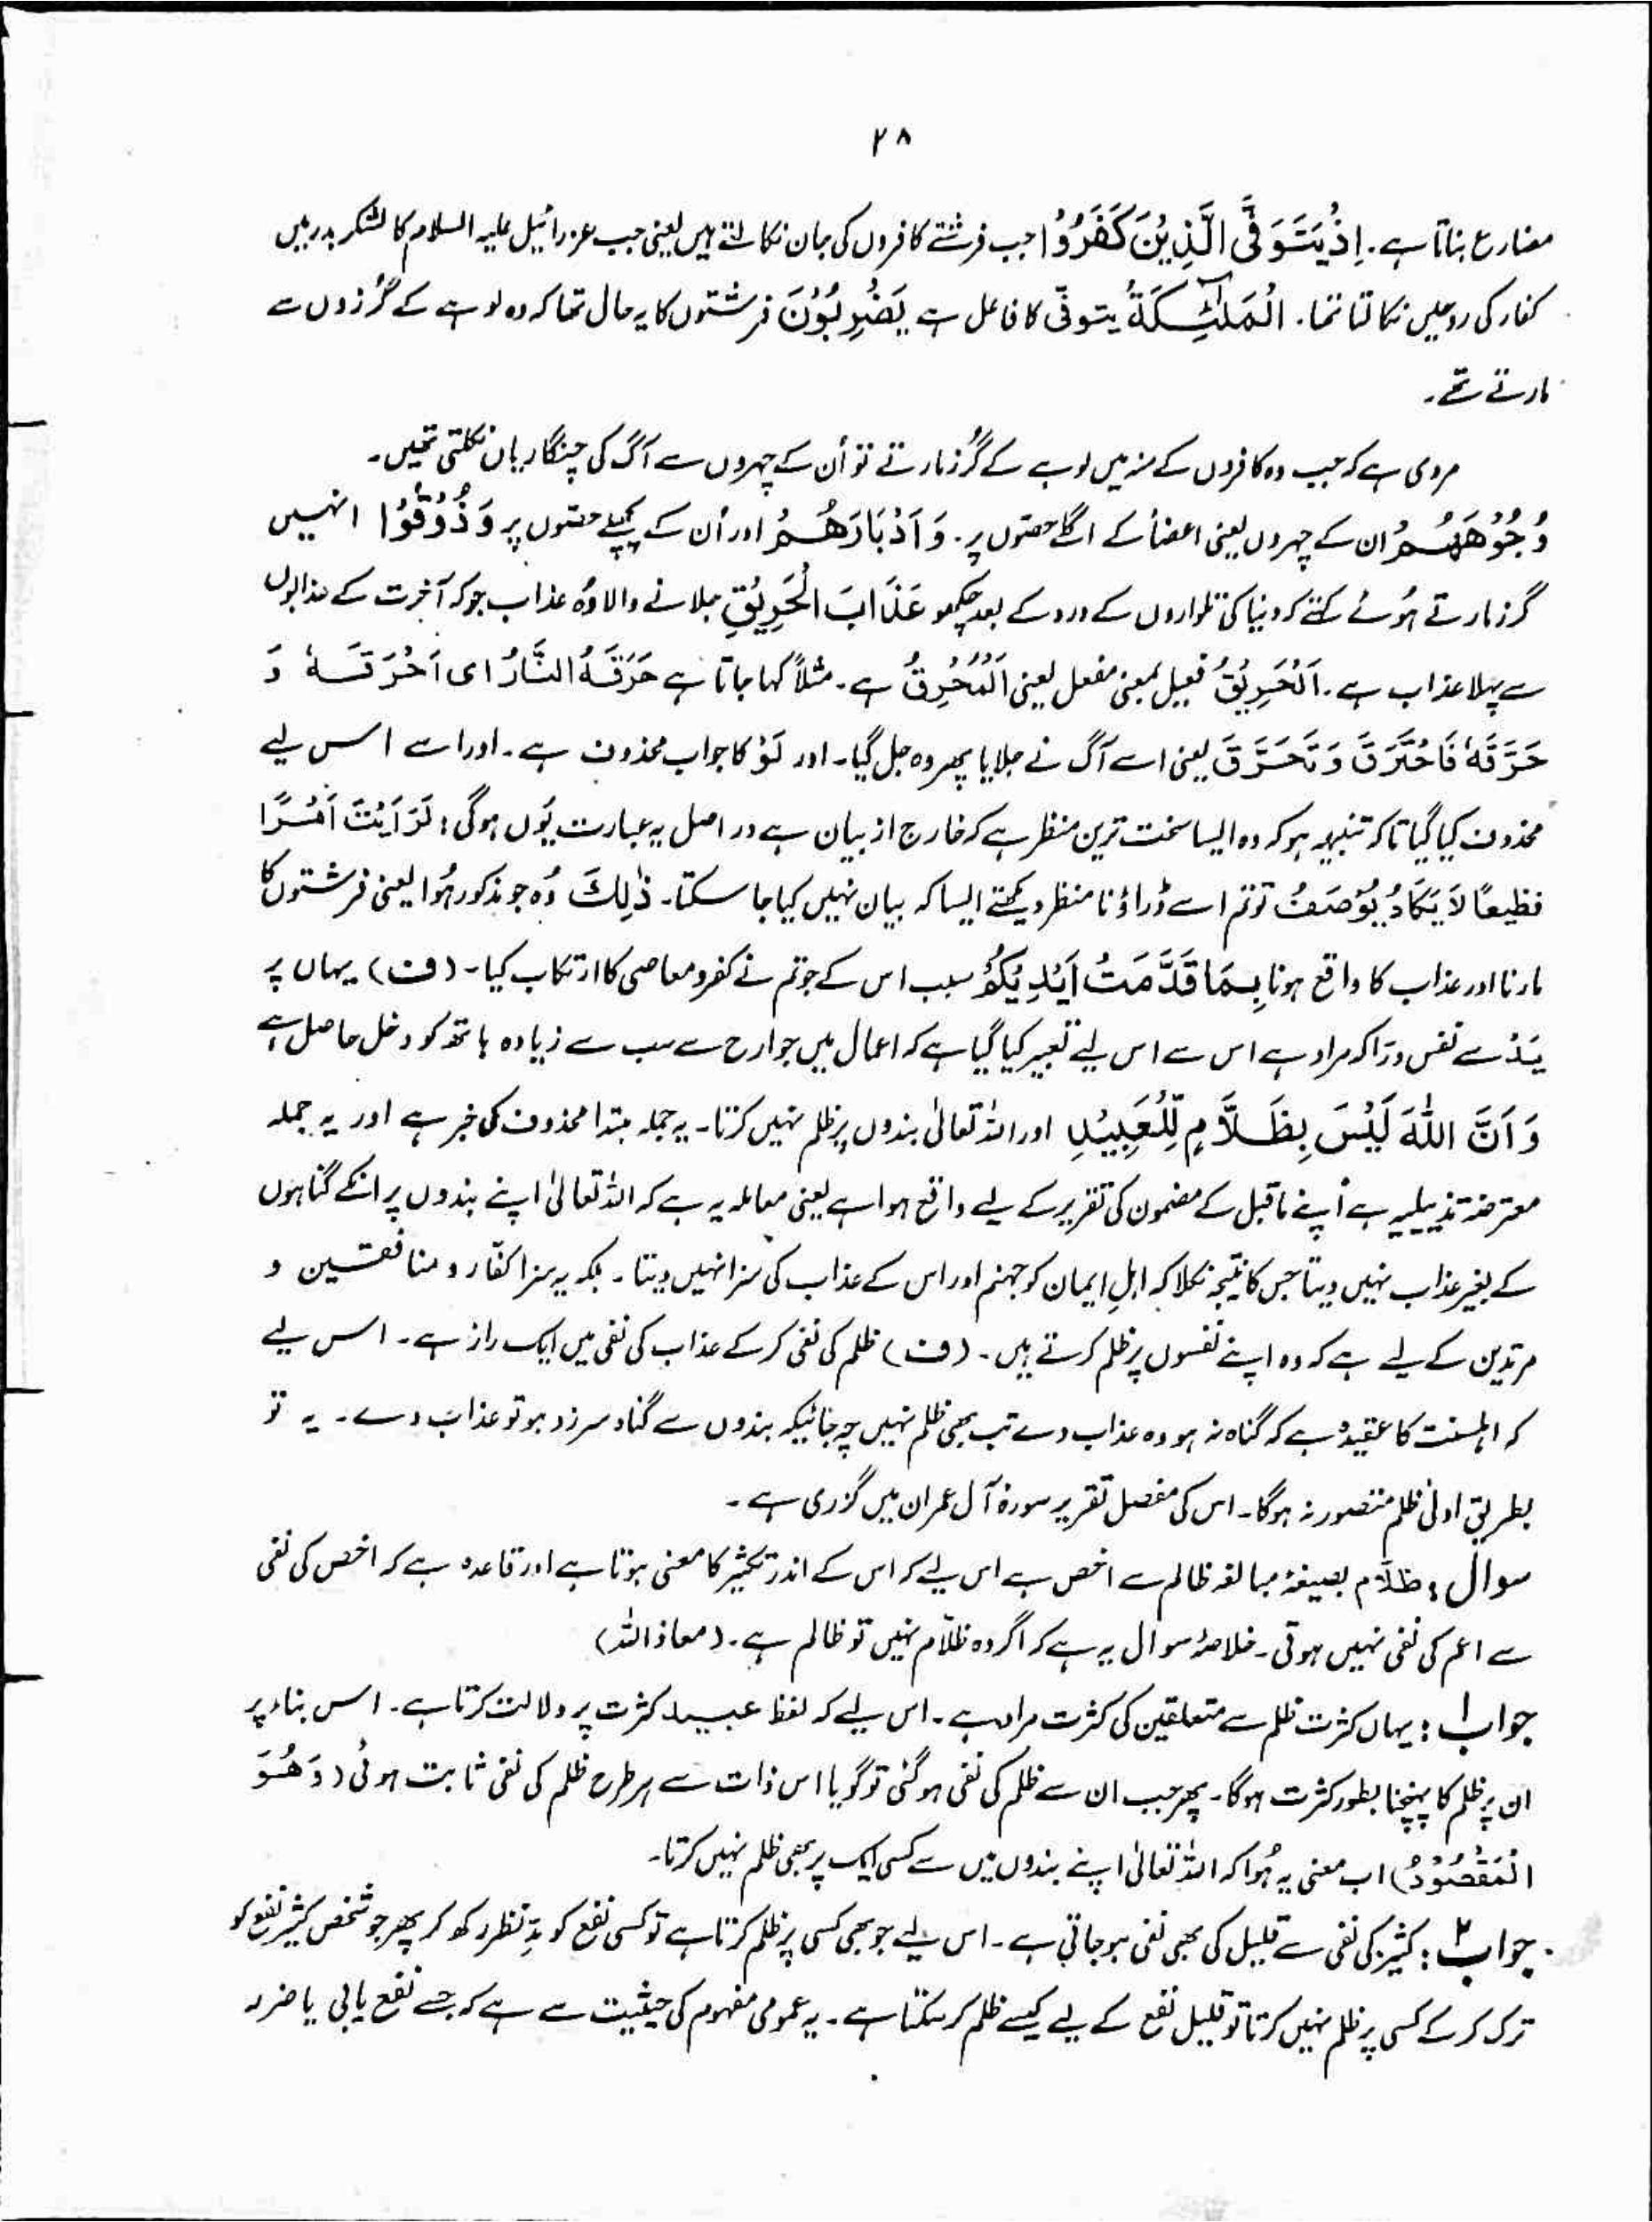 ۲۸
مضارع بناتا ہے۔ اِذْ یَتَوَفَّی الَّذِیْنَ کَفَرُوْا جب فرشتے کافروں کی جان نکالتے ہیں یعنی جب عزرائیل علیہ السلام کا لشکر بدر میں
کفار کی روحیں نکالتا تھا۔ الْمَلٰٓئِکَةُ یتوفّی کا فاعل ہے یَضْرِبُوْنَ فرشتوں کا یہ حال تھا کہ وہ لوہے کے گرزوں سے
مارتے تھے۔
مروی ہے کہ جب وہ کافروں کے منہ میں لوہے کے گرز مارتے تو اُن کے چہروں سے آگ کی چنگاریاں نکلتی تھیں۔
وُجُوْھَھُمْ ان کے چہروں یعنی اعضاٗ کے اگلے حصّوں پر۔ وَ اَدْبَارَھُمْ اور اُن کے پچھلے حصّوں پر وَ ذُوْقُوْا انہیں
گرز مارتے ہوئے کہتے کہ دنیا کی تلواروں کے درد کے بعد چکھو عَذَابَ الْحَرِیْقِ جلانے والا وُہ عذاب جو کہ آخرت کے عذابوں
سے پہلا عذاب ہے۔ اَلْحَرِیْقُ فعیل بمعنی مفعل یعنی اَلْمُحْرِقُ ہے۔ مثلاً کہا جاتا ہے حَرَقَهُ النَّارُ ای اَحْرَقَتْهُ وَ
حَرَّقَهٗ فَاحْتَرَقَ وَ تَحَرَّقَ یعنی اسے آگ نے جلایا پھر وہ جل گیا۔ اور لَوْ کا جواب محذوف ہے۔ اور اسے اس لیے
محذوف کیا گیا تاکہ تنبیہہ ہو کہ وہ ایسا سخت ترین منظر ہے کہ خارج از بیان ہے در اصل یہ عبارت یُوں ہوگی: لَرَاَیْتَ اَمْرًا
فظیعًا لَا یَکَادُ یُوْصَفُ تو تم اسے ڈراؤنا منظر دیکھتے ایسا کہ بیان نہیں کیا جا سکتا۔ ذٰلِکَ وُہ جو مذکور ہُوا یعنی فرشتوں کا
مارنا اور عذاب کا واقع ہونا بِمَا قَدَّمَتْ اَیْدِیْکُمْ بسبب اس کے جو تم نے کفر و معاصی کا ارتکاب کیا۔ (ف) یہاں پر
یَدْ سے نفس درّاکہ مراد ہے اس سے اس لیے تعبیر کیا گیا ہے کہ اعمال میں جوارح سے سب سے زیادہ ہاتھ کو دخل حاصل ہے
وَ اَنَّ اللّٰهَ لَیْسَ بِظَلَّامٍ لِّلْعَبِیْدِ اور اللہ تعالیٰ بندوں پر ظلم نہیں کرتا۔ یہ جملہ مبتدا محذوف کی خبر ہے اور یہ جملہ
معترضہ تذییلیہ ہے اُپنے ماقبل کے مضمون کی تقریر کے لیے واقع ہوا ہے یعنی معاملہ یہ ہے کہ اللہ تعالیٰ اپنے بندوں پر انکے گناہوں
کے بغیر عذاب نہیں دیتا جس کا نتیجہ نکلا کہ اہلِ ایمان کو جہنم اور اس کے عذاب کی سزا نہیں دیتا۔ بلکہ یہ سزا کفّار و منافقین و
مرتدین کے لیے ہے کہ وہ اپنے نفسوں پر ظلم کرتے ہیں۔ (ف) ظلم کی نفی کر کے عذاب کی نفی میں ایک راز ہے۔ اس لیے
کہ اہلسنت کا عقیدہ ہے کہ گناہ نہ ہو وہ عذاب دے تب بھی ظلم نہیں چہ جائیکہ بندوں سے گناہ سرزد ہو تو عذاب دے۔ یہ تو
بطریق اولیٰ ظلم متصور نہ ہوگا۔ اس کی مفصل تقریر سورۃ آل عمران میں گزری ہے۔
سوال: ظلّام بصیغۂ مبالغہ ظالم سے اخص ہے اس لیے کہ اس کے اندر تکثیر کا معنی ہوتا ہے اور قاعدہ ہے کہ اخص کی نفی
سے اعم کی نفی نہیں ہوتی۔ خلاصۂ سوال یہ ہے کہ اگر وہ ظلّام نہیں تو ظالم ہے۔ (معاذ اللہ)
جواب۱: یہاں کثرت ظلم سے متعلقین کی کثرت مراد ہے۔ اس لیے کہ لفظ عبید کثرت پر دلالت کرتا ہے۔ اس بناء پر
ان پر ظلم کا پہنچنا بطور کثرت ہوگا۔ پھر جب ان سے ظلم کی نفی ہو گئی تو گویا اس ذات سے ہر طرح ظلم کی نفی ثابت ہوئی (وَ ھُوَ
الْمَقْصُوْدُ) اب معنی یہ ہُوا کہ اللہ تعالیٰ اپنے بندوں میں سے کسی ایک پر بھی ظلم نہیں کرتا۔
جواب۲: کثیر کی نفی سے قلیل کی بھی نفی ہو جاتی ہے۔ اس لیے جو بھی کسی پر ظلم کرتا ہے تو کسی نفع کو مدِّ نظر رکھ کر پھر جو شخص کثیر نفع کو
ترک کر کے کسی پر ظلم نہیں کرتا تو قلیل نفع کے لیے کیسے ظلم کر سکتا ہے۔ یہ عمومی مفہوم کی حیثیت سے ہے کہ جسے نفع یابی یا ضرر